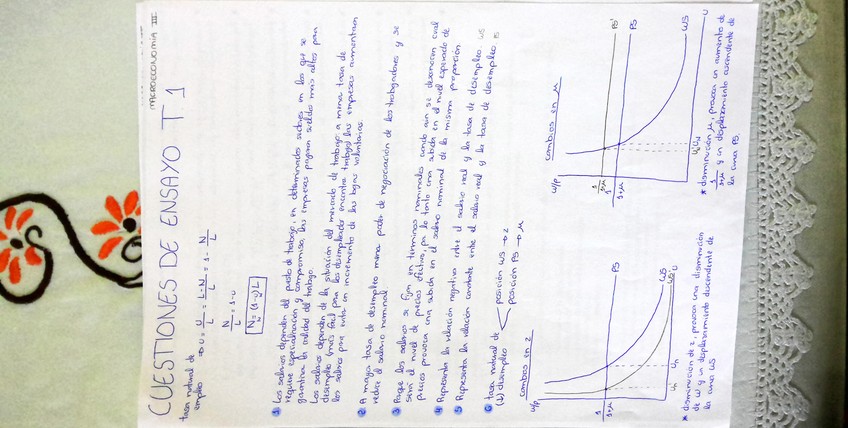 MACROECONOMIA III
CUESTIONES DE ENSAYO T1
tasa natural de
empleo
→ u = U/L = L-N/L = 1 - N/L
N/L = 1-u
N = (1-u) L
1 Los salarios dependen del puesto de trabajo, en determinados sectores en los que se
requiere especialización y compromiso, las empresas pagan sueldos más altos para
garantizar la calidad del trabajo.
Los salarios dependen de la situación del mercado de trabajo: a menor tasa de
desempleo (más fácil para los desempleados encontrar trabajo) las empresas aumentan
los salarios para evitar un incremento de las bajas voluntarias.
2 A mayor tasa de desempleo menor poder de negociación de los trabajadores y se
reduce el salario nominal
3 Porque los salarios se fijan en términos nominales cuando aún se desconoce cuál
será el nivel de precios efectivo, por lo tanto una subida en el nivel esperado de
precios provoca una subida en el salario nominal de la misma proporción.
4 Representa la relación negativa entre el salario real y la tasa de desempleo. WS
5 Representa la relación constante entre el salario real y la tasa de desempleo PS
6 tasa natural de
(↓) desempleo
posición WS → z
posición PS → μ
cambios en z
W/P
1/1+μ
PS
WS
WS'
U
u'n
un
* disminución de z, provoca una disminución
de W y un desplazamiento descendente de
la curva WS
cambios en μ
W/P
1/1+μ
1/1+μ
PS'
PS
WS
U
u'n un
* disminución μ, provoca un aumento de
1/1+μ y un desplazamiento ascendente de
la curva PS.